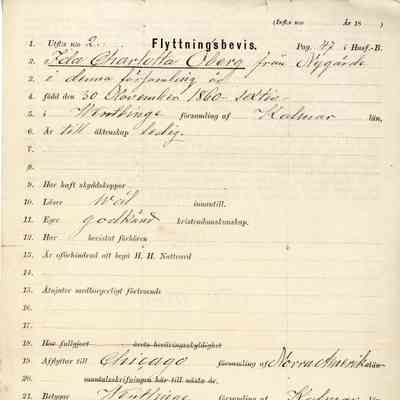 (Infta n:o År 18 )
1. Utfl:a n:o 2. Flyttningsbevis. Pag. 47 i Husf.-B.
2. Ida Charlotta Öberg från Nygärde
3. i denna församling är
4. född den 30 November 1860 sextio
5. i Wentlinge församling af Kalmar län,
6. Är till äktenskap ledig.
7.
8.
9. Har haft skyddskoppor
10. Läser wäl innantill.
11. Eger godkänd kristendomskunskap.
12. Har bevistat förhören
13. Är oförhindrad att begå H. H. Nattvard
14.
15. Åtnjuter medborgerligt förtroende
16.
17.
18. Har fullgjort årets beväringsskyldighet
19. Afflyttar till Chicago församling af Norra Amerika län
20. mantalsskrifningen här till nästa år.
21. Betygar Wentlinge församling af Kalmar